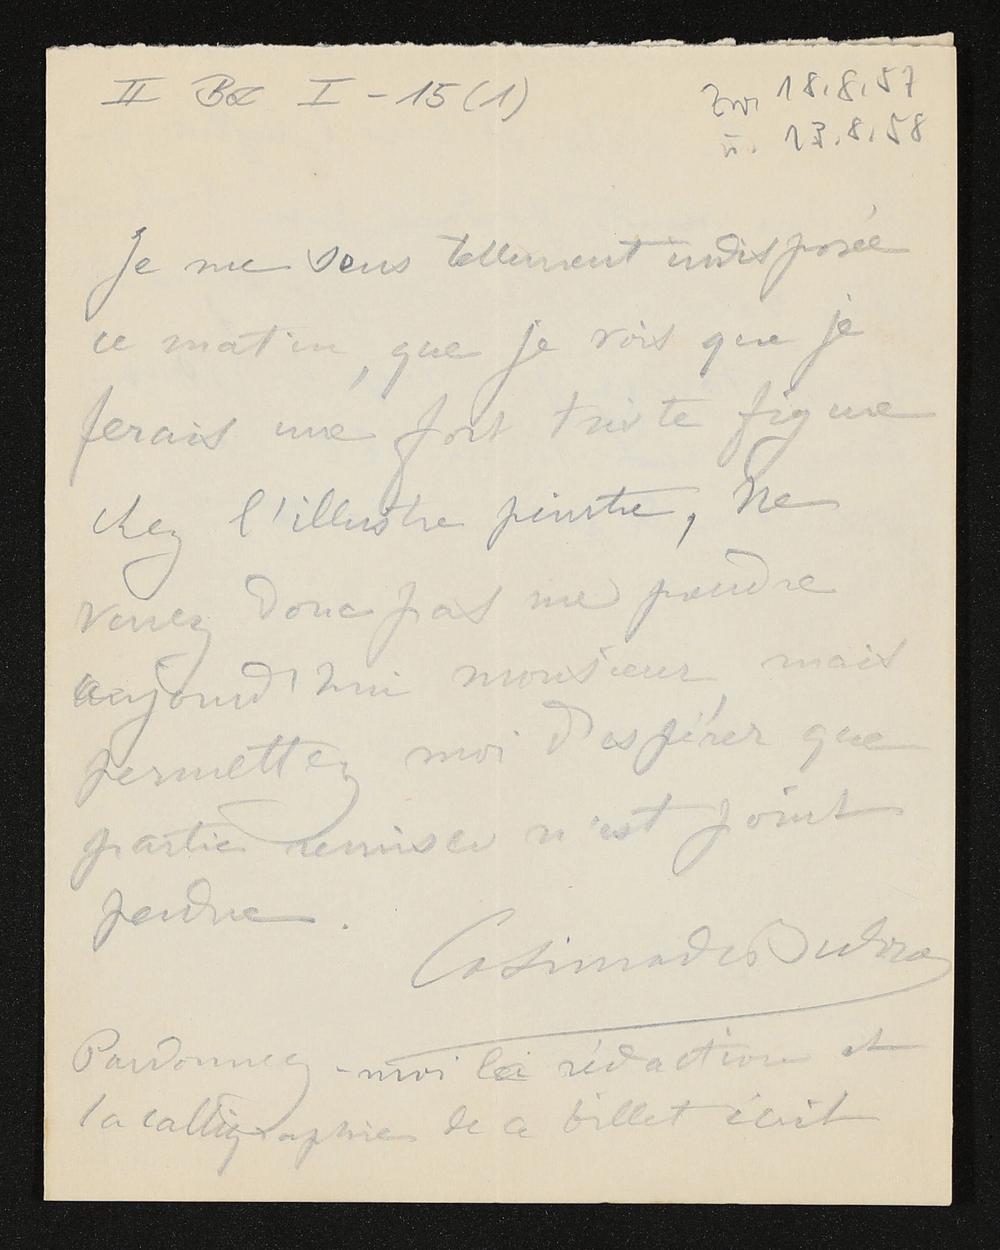 II Bd I - 15(1)
Zw. 18.8.57
u. 13.8.58
Je me sens tellement indisposée
ce matin, que je vois que je
ferais une fort triste figure
chez l'illustre peintre, Ne
venez donc pas me prendre
aujourd'hui monsieur, mais
permettez moi d'espérer que
partie remise n'est point
perdue.
Cosima de
Pardonnez-moi la rédaction et
la calligraphie de ce billet écrit